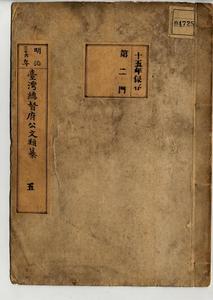 04728
十五年保存
第二門
明治
臺灣總督府公文類纂
五